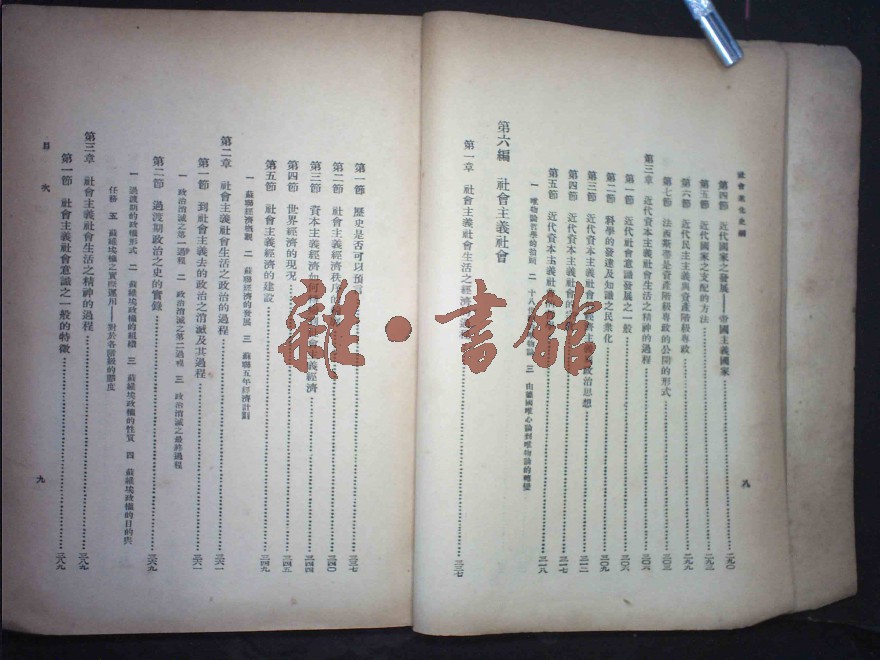 社會進化史綱
第四節 近代國家之發展——帝國主義國家 二九〇
第五節 近代國家之支配的方法 二九三
第六節 近代民主主義與資產階級專政 二九九
第七節 法西斯蒂是資產階級專政的公開的形式 三〇三
第三章 近代資本主義社會生活之精神的過程 三〇六
第一節 近代社會意識發展之一般 三〇六
第二節 科學的發達及知識之民衆化 三〇九
第三節 近代資本主義社會的經濟主義政治思想 三一二
第四節 近代資本主義社會的 三一七
第五節 近代資本主義社會 三一八
一 唯物論哲學的 二 十八世 三 由德國唯心論到唯物論的轉變
第六編 社會主義社會
第一章 社會主義社會生活之經濟 三三七
八
第一節 歷史是否可以預 三三七
第二節 社會主義經濟秩序的 三四〇
第三節 資本主義經濟如何 社會主義經濟 三四四
第四節 世界經濟的現況 三四五
第五節 社會主義經濟的建設 三四九
一 蘇聯經濟概觀 二 蘇聯經濟的發展 三 蘇聯五年經濟計劃
第二章 社會主義社會生活之政治的過程 三六一
第一節 到社會主義去的政治之消滅及其過程 三六一
一 政治消滅之第一過程 二 政治消滅之第二過程 三 政治消滅之最終過程
第二節 過渡期政治之史的實錄 三六九
一 過渡期的政權形式 二 蘇維埃政權的組織 三 蘇維埃政權的性質 四 蘇維埃政權的目的與
任務 五 蘇維埃政權之實際運用——對於各階級的態度
第三章 社會主義社會生活之精神的過程 三八九
第一節 社會主義社會意識之一般的特徵 三八九
目次
九
雜·書館